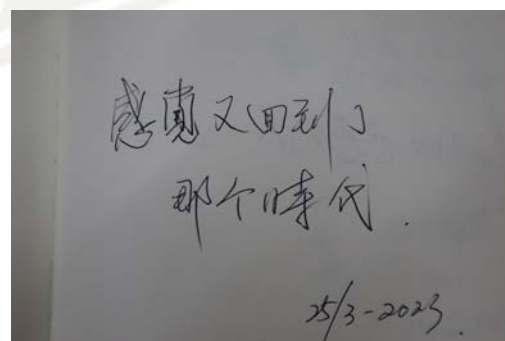 感覺又回到了
那个時代.
25/3-2023.